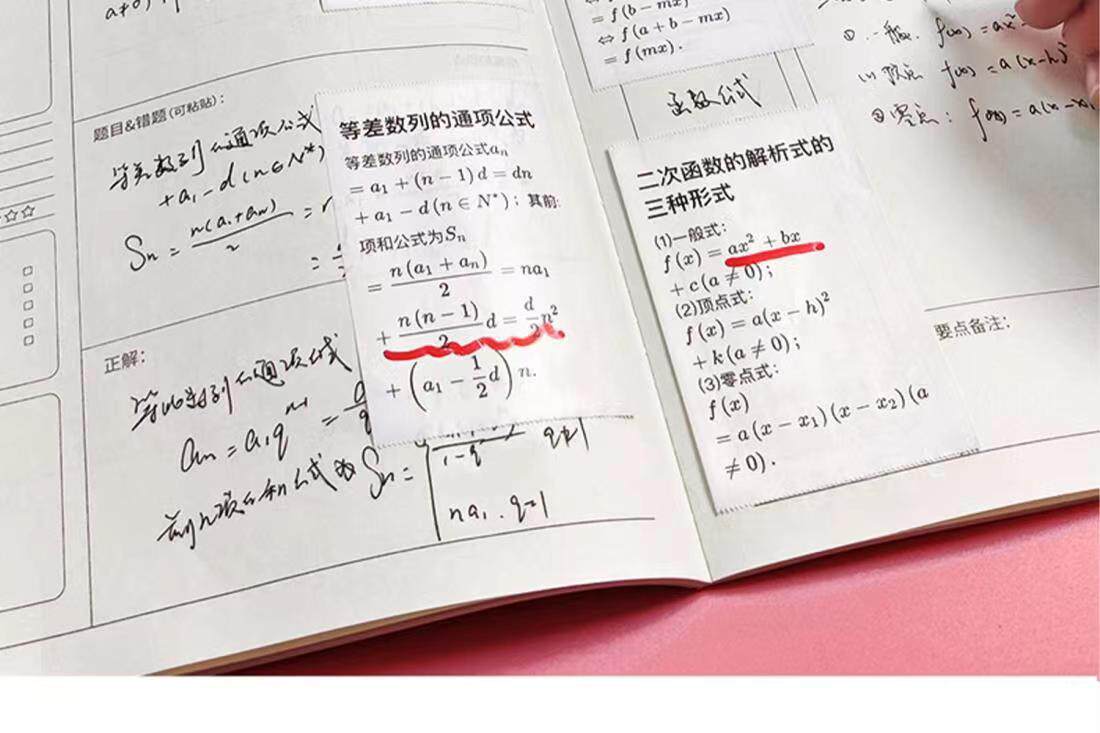 题目&错题(可粘贴):
等差数列的通项公式
+a₁-d(n∈N*)
Sₙ = n(a₁+aₙ)/2 =
正解:
等比数列的通项公式
aₙ = a₁qⁿ⁻¹ =
前n项和公式为Sₙ=
1-q q≠1
na₁. q=1
等差数列的通项公式
等差数列的通项公式aₙ
= a₁ + (n − 1) d = dn
+ a₁ − d (n ∈ N*) ; 其前
项和公式为Sₙ
= n(a₁ + aₙ)/2 = na₁
+ n(n − 1)/2 d = d/2 n²
+ (a₁ − 1/2 d) n.
= f(b − mx)
⇔ f(a + b − mx)
= f(mx).
函数公式
二次函数的解析式的
三种形式
(1)一般式:
f(x) = ax² + bx
+ c(a ≠ 0) ;
(2)顶点式:
f(x) = a(x − h)²
+ k(a ≠ 0) ;
(3)零点式:
f(x)
= a(x − x₁)(x − x₂)(a
≠ 0).
①一般. f(x) = ax²
f(x) = a(x-h)²
零点: f(x) = a(x-x₁
要点备注: